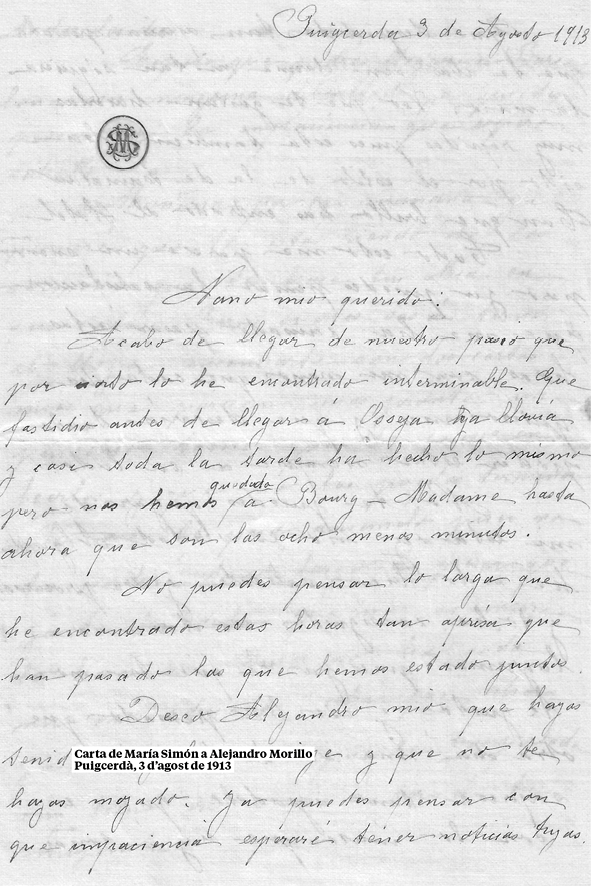 Puigcerda 3 de Agosto 1913
MS
Nano mio querido:
Acabo de llegar de nuestro paseo que
por cierto lo he encontrado interminable. Que
fastidio antes de llegar á Osseja ya llovia
y casi toda la tarde ha hecho lo mismo
pero nos hemos quedado á Bourg-Madame hasta
ahora que son las ocho menos minutos.
No puedes pensar lo larga que
he encontrado estas horas tan aprisa que
han pasado las que hemos estado juntos.
Deseo Alejandro mio que hayas
tenid y que no te
Carta de María Simón a Alejandro Morillo
Puigcerdà, 3 d'agost de 1913
hayas mojado. Ya puedes pensar con
que impaciencia esperaré tener noticias tuyas.